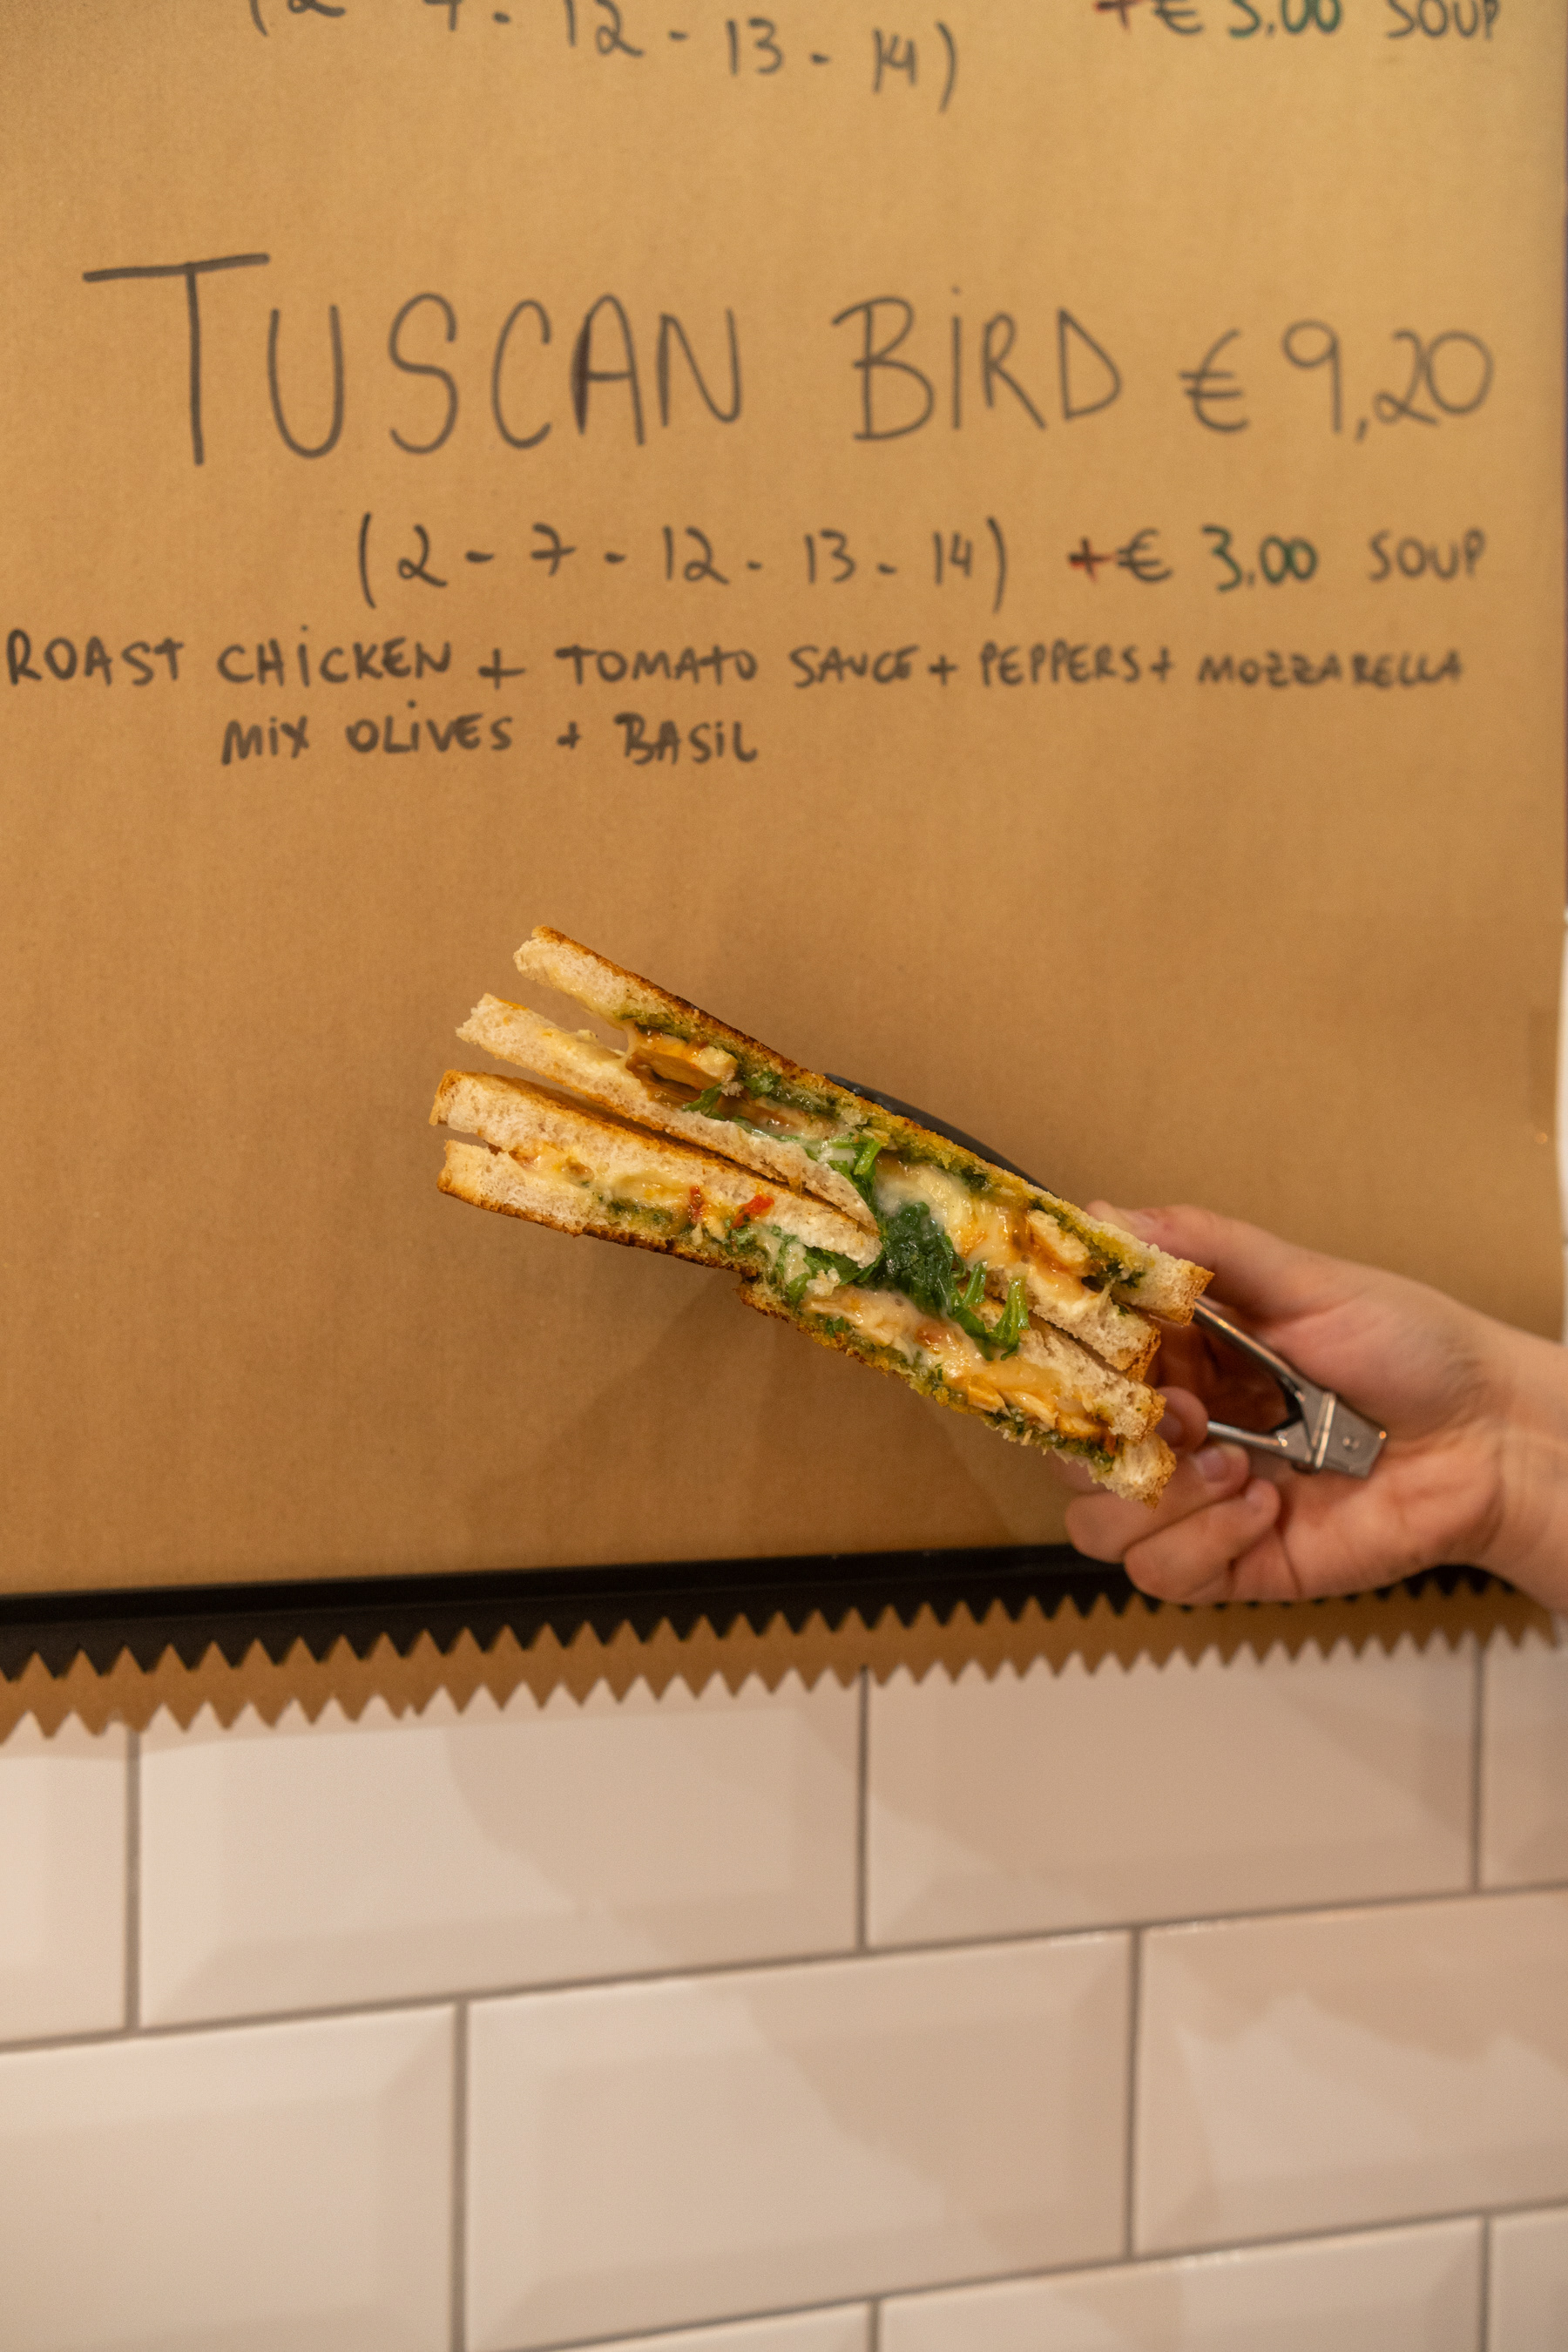 (2 - 7 - 12 - 13 - 14) +€ 3.00 SOUP
TUSCAN BIRD € 9,20
(2 - 7 - 12 - 13 - 14) +€ 3.00 SOUP
ROAST CHICKEN + TOMATO SAUCE + PEPPERS + MOZZARELLA
MIX OLIVES + BASIL